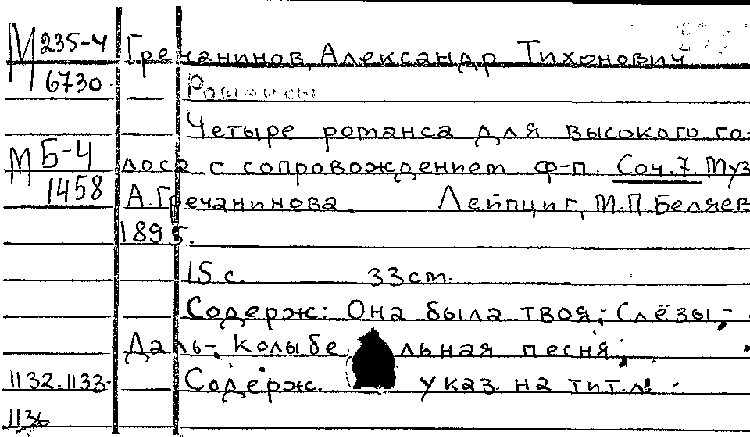 М 235-4 Гречанинов, Александр Тихонович
6730 Романсы
Четыре романса для высокого го-
М Б-4 лоса с сопровождением ф-п. Соч.7 Муз
1458 А. Гречанинова. Лейпциг, М.П.Беляев
1895.
15 с. 33 см.
Содерж: Она была твоя;- Слёзы;-
Даль-; Колыбельная песня;
1132.1133- Содерж. указ. на тит.л.
1136